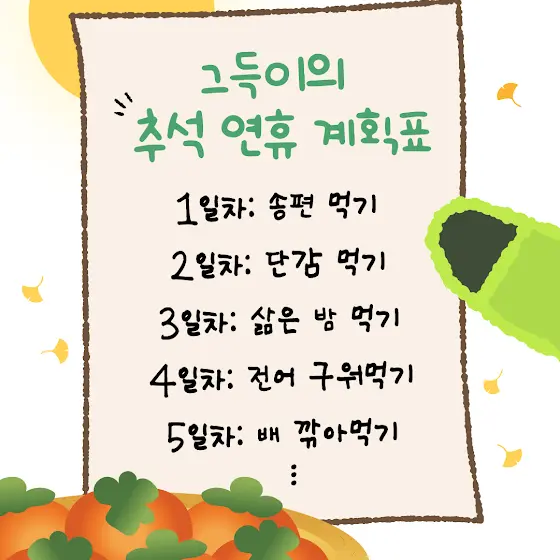 그득이의
추석 연휴 계획표
1일차: 송편 먹기
2일차: 단감 먹기
3일차: 삶은 밤 먹기
4일차: 전어 구워먹기
5일차: 배 깎아먹기
⋮